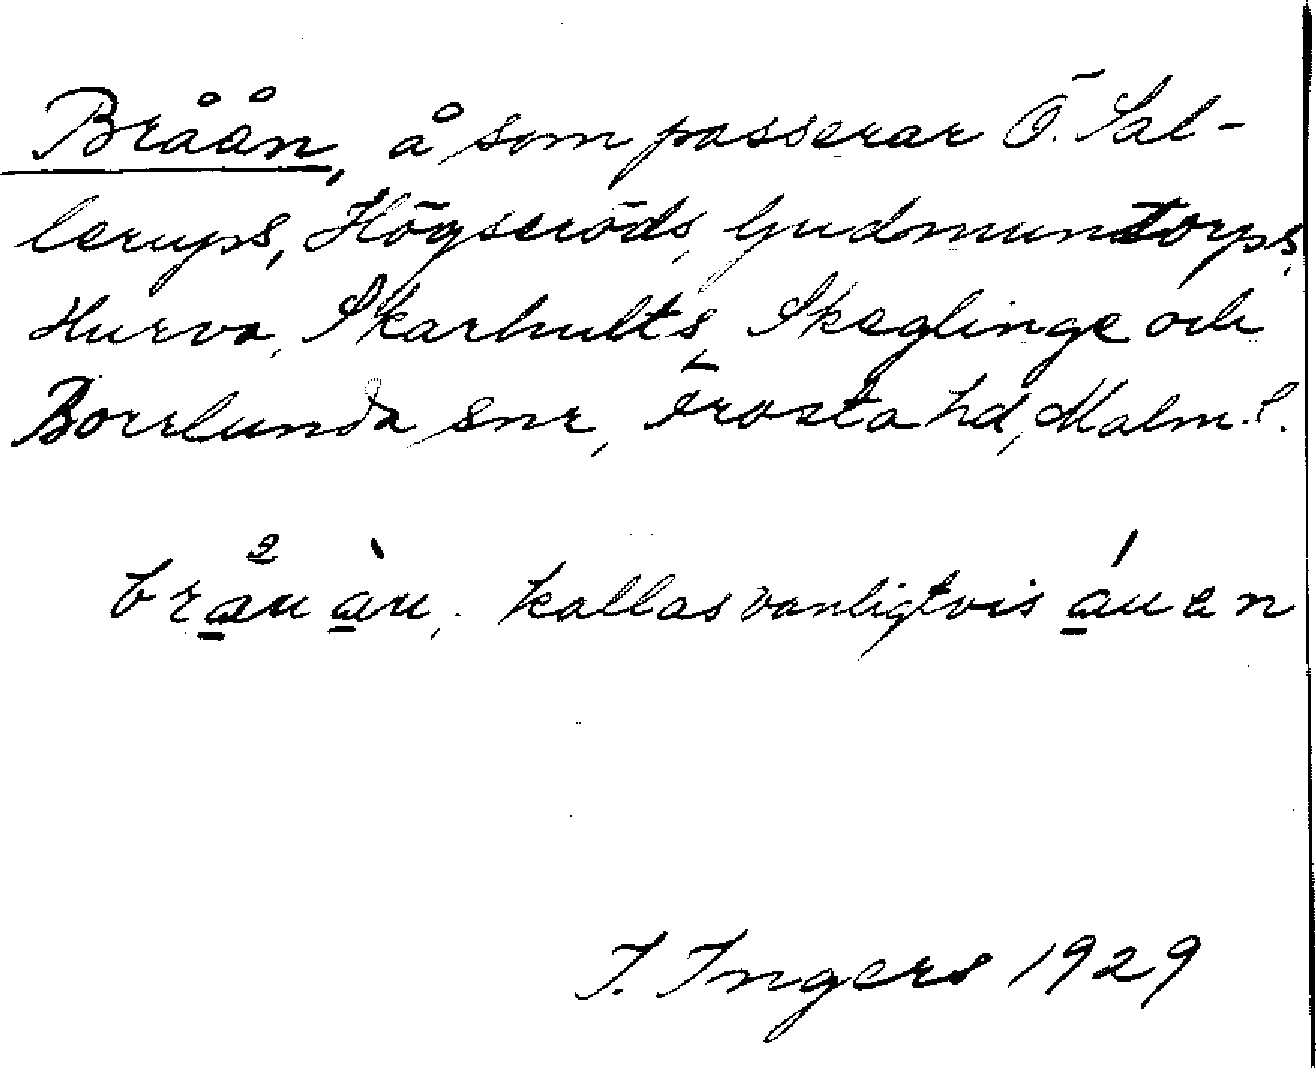 Bråån, å som passerar Ö. Sal-
lerups, Högseröds, Gudmuntorps,
Hurva, Skarhults, Skeglinge och
Borrlunda snr, Frosta hd, Malm. l.
bråu åu, kallas vanligtvis áuen
I. Ingers 1929